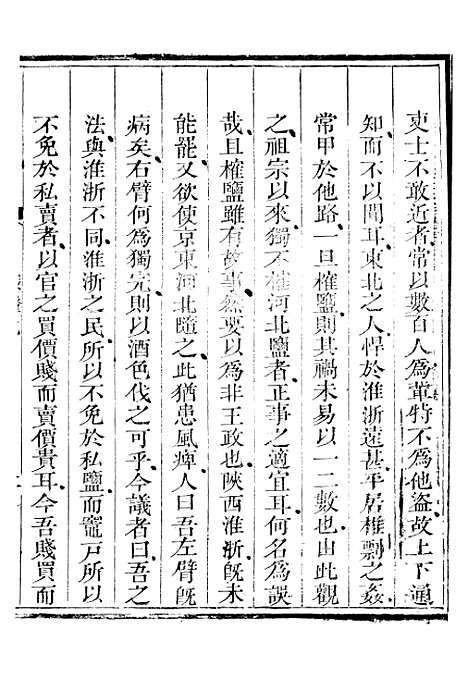 吏士不敢近者常以數百人爲輩特不爲他盜故上下通
知而不以聞耳東北之人悍於淮浙遠甚平居椎剽之姦
常甲於他路一旦榷鹽則其禍未易以一二數也由此觀
之祖宗以來獨不榷河北鹽者正事之適宜耳何名爲誤
哉且榷鹽雖有故事然要以爲非王政也陝西淮浙旣未
能罷又欲使京東河北隨之此猶患風痺人曰吾左臂旣
病矣右臂何爲獨完則以酒色伐之可乎今議者曰吾之
法與淮浙不同淮浙之民所以不免於私鹽而竈戸所以
不免於私賣者以官之買價賤而賣價貴耳今吾賤買而